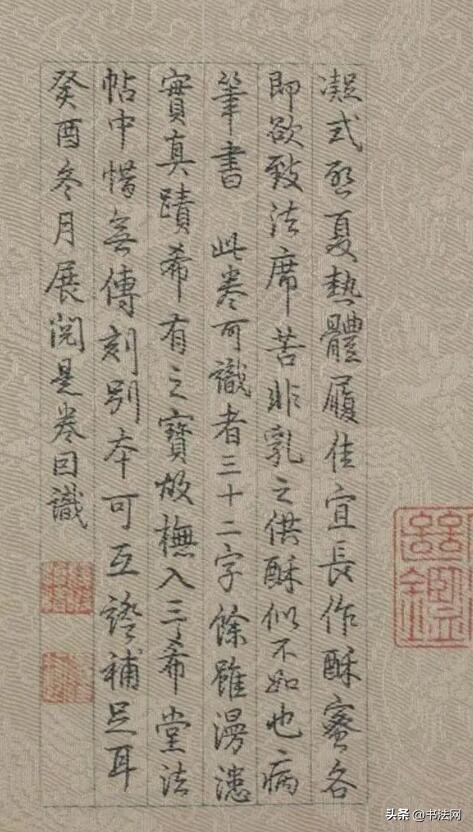 凝式啓夏熱體履佳宜長作酥蜜各
即欲致法席苦非乳之供酥似不如也病
筆書 此卷可識者三十二字餘雖漫漶
實真蹟希有之寶故橅入三希堂法
帖中惜無傳刻別本可互證補足耳
癸酉冬月展閱是卷因識
头条 @书法网